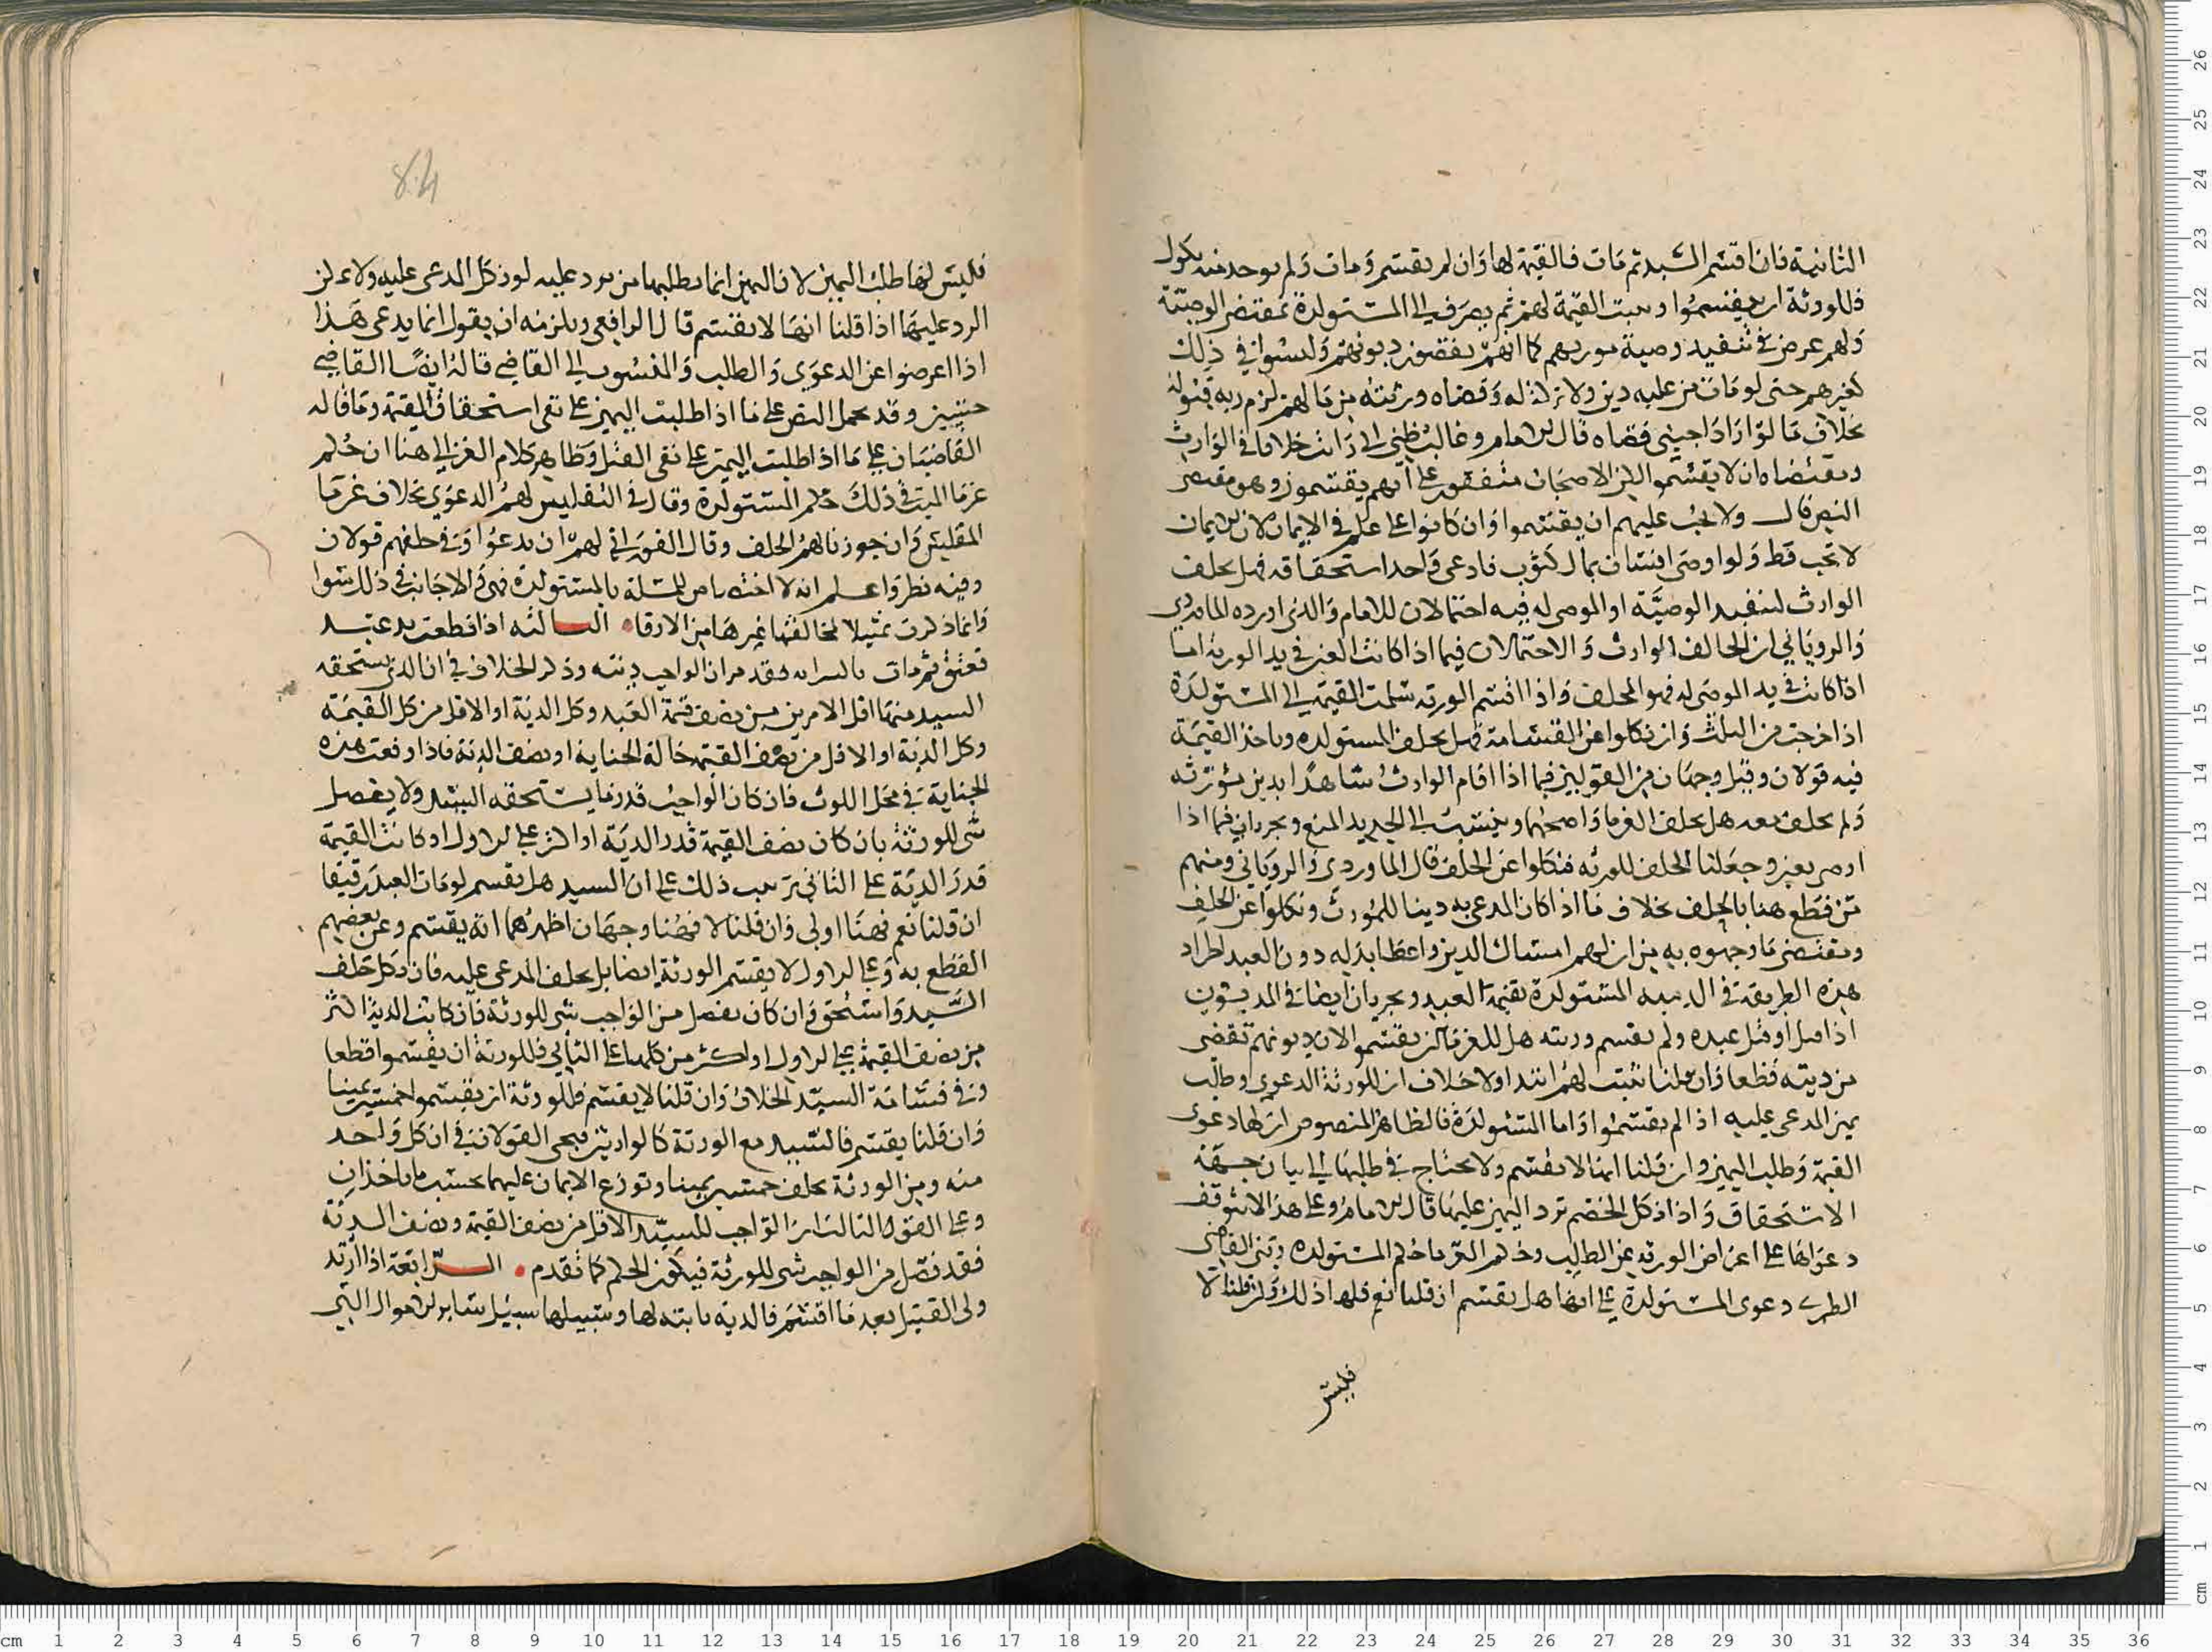 الثانية فان اقسم السيد ثم مات فالقيمة لها وان لم يقسم ومات ولم يوجد منه نكول
فللورثة ان يقسموا وتثبت القيمة لهم ثم يصرف الى المستولدة بمقتضى الوصية
ولهم غرض في تنفيذ وصية مورثهم كما انهم يقضون ديونهم وليسوا في ذلك
كغيرهم حتى لو مات من عليه دين ولا تركة له وقضاه ورثته من مالهم لزم ربه قبوله
بخلاف ما لو اراد اجنبي قضاه قال الامام وغالب ظني اني رايت خلافا في الوارث
ومقتضاه ان لا يقسموا لكن الاصحاب متفقون على انهم يقسمون وهو مقتضى
النص قال ولا يجب عليهم ان يقسموا وان كانوا على علم في الايمان لان الايمان
لا تجب قط ولو اوصى انسان بمال كثوب فادعى واحد استحقاقه فهل يحلف
الوارث لتنفيذ الوصية او الموصى له فيه احتمالان للامام والذي اورده الماوردي
والروياني ان الحالف الوارث والاحتمالان فيما اذا كانت العين في يد الورثة اما
اذا كانت في يد الموصى له فهو المحلف واذا اقسم الورثة سلمت القيمة الى المستولدة
اذا خرجت من الثلث وان نكلوا عن القسامة فهل يحلف المستولدة وياخذ القيمة
فيه قولان وقيل وجهان من القولين فيما اذا اقام الوارث شاهدا بدين مورثه
ولم يحلف معه هل يحلف الغرما واصحهما وينسب الى الجديد المنع ويجريان فيما اذا
اوصى بعين وجعلنا الحلف للورثة فنكلوا عن الحلف قال الماوردي والروياني ومنهم
من قطع هنا بالحلف بخلاف ما اذا كان المدعى به دينا للمورث ونكلوا عن الحلف
ومقتضى ما وجهوه به من ان لهم امساك الدين واعطا بدله دون العبد اطراد
هذه الطريقة في المستولدة بقيمة العبد ويجريان ايضا في المديون
اذا قتل او قتل عبده ولم يقسم ورثته هل للغرما ان يقسموا لان ديونهم تقضى
من ديته قطعا وان قلنا تثبت لهم ابتدا ولا خلاف ان للورثة الدعوى وطلب
يمين المدعى عليه اذا لم يقسموا واما المستولدة فالظاهر المنصوص ان لها دعوى
القيمة وطلب اليمين وان قلنا انها لا تقسم ولا يحتاج في طلبها الى بيان جهة
الاستحقاق واذا نكل الخصم ترد اليمين عليها قال الامام وعلى هذا لا تتوقف
دعواها على اعراض الورثة عن الطلب وحكم الغرما حكم المستولدة وبنى القاضي
الطبري دعوى المستولدة على انها هل تقسم ان قلنا نعم فلها ذلك وان قلنا لا
فليس
فليس لها طلب اليمين لان اليمين انما يطلبها من ترد عليه لو نكل المدعى عليه ولا يمكن
الرد عليها اذا قلنا انها لا تقسم قال الرافعي ويلزمه ان يقول انما يدعى هذا
اذا اعرضوا عن الدعوى والطلب والمنسوب الى القاضي قاله ايضا القاضي
حسين وقد يحمل النص على ما اذا طلبت اليمين على نفي استحقاق القيمة وما قاله
القاضيان على ما اذا طلبت اليمين على نفي القتل وظاهر كلام الغزالي هنا ان حكم
غرما الميت في ذلك حكم المستولدة وقال في التفليس لهم الدعوى بخلاف غرما
المفلس وان جوزنا لهم الحلف وقال الفوراني لهم ان يدعوا وفي حلفهم قولان
وفيه نظر واعلم انه لا اختصاص للمسلة بالمستولدة فهي والاجانب في ذلك سوا
وانما ذكرت تمثيلا لمخالفتها غيرها من الارقا الثالثه اذا قطعت يد عبد
فعتق ثم مات بالسراية فقد مر ان الواجب ديته وذكر الخلاف في ان الذي يستحقه
السيد منها اقل الامرين من نصف قيمة العبد وكل الدية او الاقل من كل القيمة
وكل الدية او الاقل من نصف القيمة حالة الجناية او نصف الدية فاذا وقعت هذه
الجناية في محل اللوث فان كان الواجب قدر ما يستحقه السيد ولا يفضل
شي للورثة بان كان نصف القيمة قدر الدية او اكثر على الاول او كانت القيمة
قدر الدية على الثاني ترتب ذلك على ان السيد هل يقسم لو مات العبد رقيقا
ان قلنا نعم فهنا اولى وان قلنا لا فهنا وجهان اظهرهما انه يقسم وعن بعضهم
القطع به وعلى الاول لا يقسم الورثة ايضا بل يحلف المدعى عليه فان نكل حلف
السيد واستحق وان كان يفضل من الواجب شي للورثة فان كانت الدية اكثر
من نصف القيمة على الاول او اكثر من كلها على الثاني فللورثة ان يقسموا قطعا
وفي قسامة السيد الخلاف وان قلنا لا يقسم فللورثة ان يقسموا خمسين يمينا
وان قلنا يقسم فالسيد مع الورثة كالوارثين فيجي القولان في ان كل واحد
منه ومن الورثة يحلف خمسين يمينا وتوزع الايمان عليهما بحسب ما ياخذان
وعلى القول الثالث ان الواجب للسيد الاقل من نصف القيمة ونصف الدية
فقد فضل من الواجب شي للورثة فيكون الحكم كما تقدم الرابعة اذا ارتد
ولى القتيل بعد ما اقسم فالدية ثابتة لها وسبيلها سبيل سائر الاموال التي